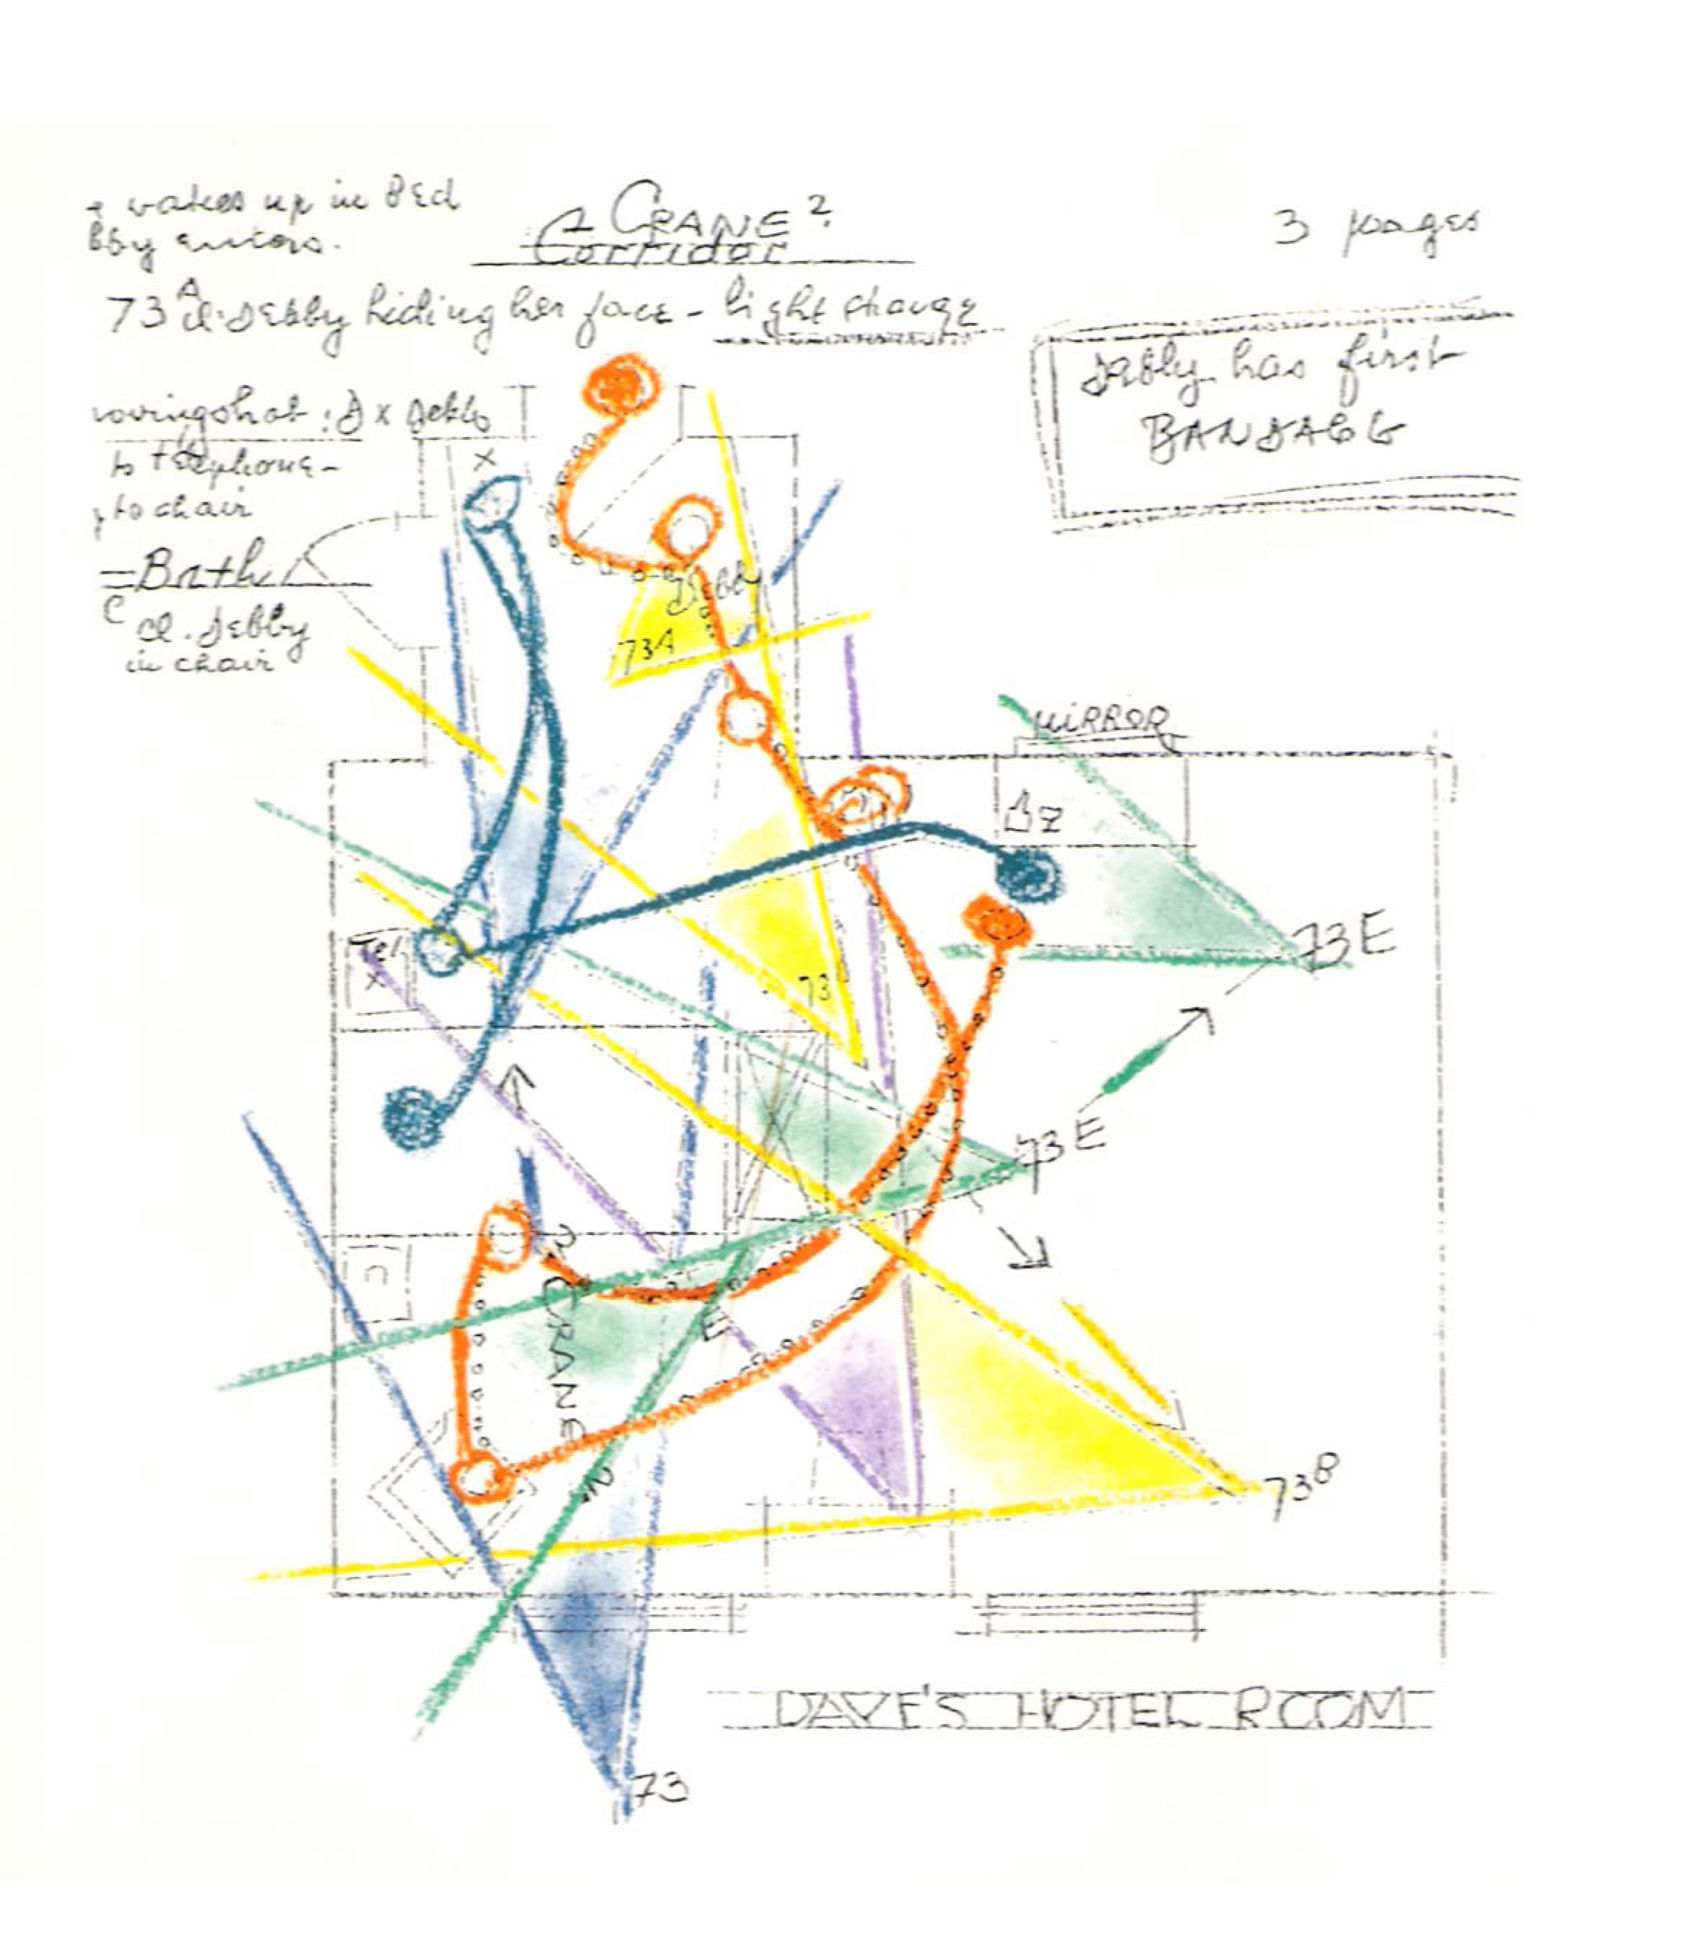 wakes up in Bed
bby enters.
1 CRANE ?
Corridor
3 pages
73 A Cl. Debby hiding her face - light change
Debby has first
BANDAGE
ovingshot : D x Debb
to telephone -
to chair
= Bath
C Cl. Debby
in chair
x
Debby
73A
MIRROR
DZ
Tel
x
73
73E
73E
? CRANE ?
E
73B
DAVE'S HOTEL ROOM
73